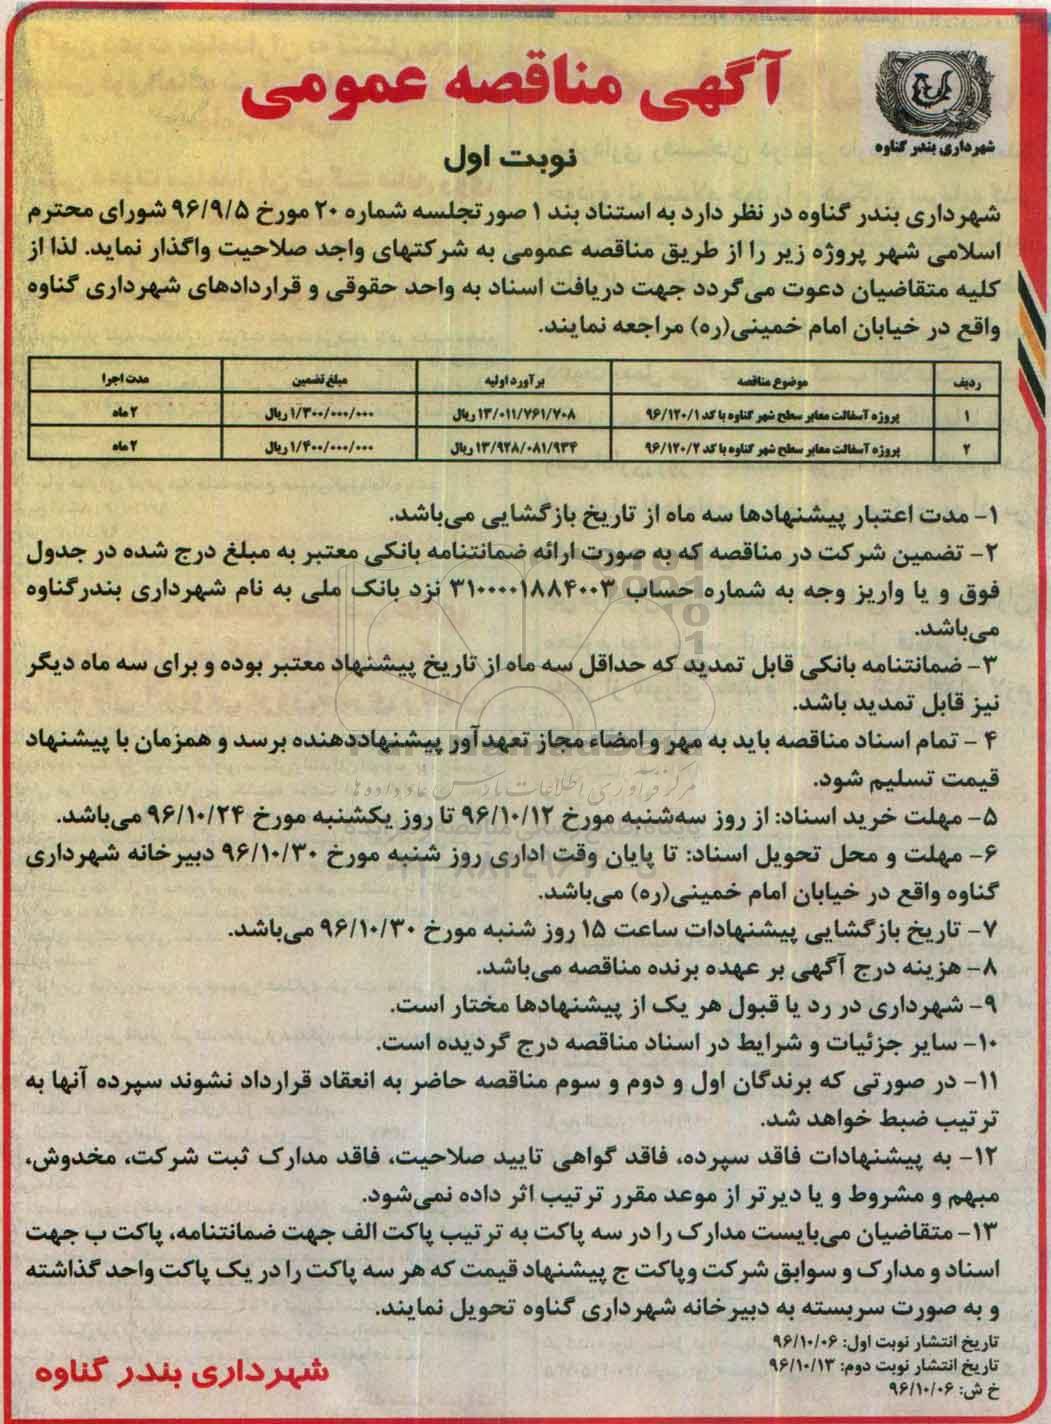 شهرداری بندر گناوه
آگهی مناقصه عمومی
نوبت اول
شهرداری بندر گناوه در نظر دارد به استناد بند ۱ صورتجلسه شماره ۲۰ مورخ ۹۶/۹/۵ شورای محترم
اسلامی شهر پروژه زیر را از طریق مناقصه عمومی به شرکتهای واجد صلاحیت واگذار نماید. لذا از
کلیه متقاضیان دعوت می‌گردد جهت دریافت اسناد به واحد حقوقی و قراردادهای شهرداری گناوه
واقع در خیابان امام خمینی(ره) مراجعه نمایند.
ردیف موضوع مناقصه برآورد اولیه مبلغ تضمین مدت اجرا
۱ پروژه آسفالت معابر سطح شهر گناوه با کد ۹۶/۱۲۰/۱ ۱۳/۰۱۱/۷۶۱/۷۰۸ ریال ۱/۳۰۰/۰۰۰/۰۰۰ ریال ۲ ماه
۲ پروژه آسفالت معابر سطح شهر گناوه با کد ۹۶/۱۲۰/۲ ۱۳/۹۲۸/۰۸۱/۹۳۴ ریال ۱/۴۰۰/۰۰۰/۰۰۰ ریال ۲ ماه
۱- مدت اعتبار پیشنهادها سه ماه از تاریخ بازگشایی می‌باشد.
۲- تضمین شرکت در مناقصه که به صورت ارائه ضمانتنامه بانکی معتبر به مبلغ درج شده در جدول
فوق و یا واریز وجه به شماره حساب ۳۱۰۰۰۰۱۸۸۴۰۰۳ نزد بانک ملی به نام شهرداری بندرگناوه
می‌باشد.
۳- ضمانتنامه بانکی قابل تمدید که حداقل سه ماه از تاریخ پیشنهاد معتبر بوده و برای سه ماه دیگر
نیز قابل تمدید باشد.
۴ - تمام اسناد مناقصه باید به مهر و امضاء مجاز تعهدآور پیشنهاددهنده برسد و همزمان با پیشنهاد
قیمت تسلیم شود.
۵- مهلت خرید اسناد: از روز سه‌شنبه مورخ ۹۶/۱۰/۱۲ تا روز یکشنبه مورخ ۹۶/۱۰/۲۴ می‌باشد.
۶- مهلت و محل تحویل اسناد: تا پایان وقت اداری روز شنبه مورخ ۹۶/۱۰/۳۰ دبیرخانه شهرداری
گناوه واقع در خیابان امام خمینی(ره) می‌باشد.
۷- تاریخ بازگشایی پیشنهادات ساعت ۱۵ روز شنبه مورخ ۹۶/۱۰/۳۰ می‌باشد.
۸- هزینه درج آگهی بر عهده برنده مناقصه می‌باشد.
۹- شهرداری در رد یا قبول هر یک از پیشنهادها مختار است.
۱۰- سایر جزئیات و شرایط در اسناد مناقصه درج گردیده است.
۱۱- در صورتی که برندگان اول و دوم و سوم مناقصه حاضر به انعقاد قرارداد نشوند سپرده آنها به
ترتیب ضبط خواهد شد.
۱۲- به پیشنهادات فاقد سپرده، فاقد گواهی تایید صلاحیت، فاقد مدارک ثبت شرکت، مخدوش،
مبهم و مشروط و یا دیرتر از موعد مقرر ترتیب اثر داده نمی‌شود.
۱۳- متقاضیان می‌بایست مدارک را در سه پاکت به ترتیب پاکت الف جهت ضمانتنامه، پاکت ب جهت
اسناد و مدارک و سوابق شرکت وپاکت ج پیشنهاد قیمت که هر سه پاکت را در یک پاکت واحد گذاشته
و به صورت سربسته به دبیرخانه شهرداری گناوه تحویل نمایند.
تاریخ انتشار نوبت اول: ۹۶/۱۰/۰۶
تاریخ انتشار نوبت دوم: ۹۶/۱۰/۱۳
خ ش: ۹۶/۱۰/۰۶
شهرداری بندر گناوه